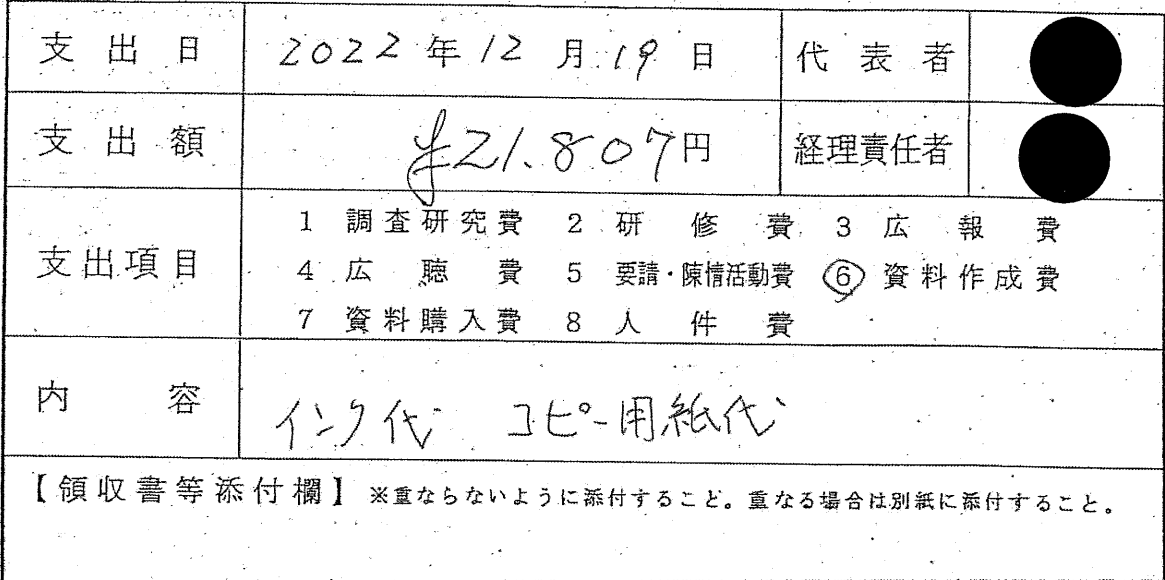 支出日 2022年12月19日 代表者
支出額 ¥21.807円 経理責任者
支出項目
1 調査研究費 2 研修費 3 広報費
4 広聴費 5 要請・陳情活動費 ⑥ 資料作成費
7 資料購入費 8 人件費
内容 インク代 コピー用紙代
【領収書等添付欄】 ※重ならないように添付すること。重なる場合は別紙に添付すること。